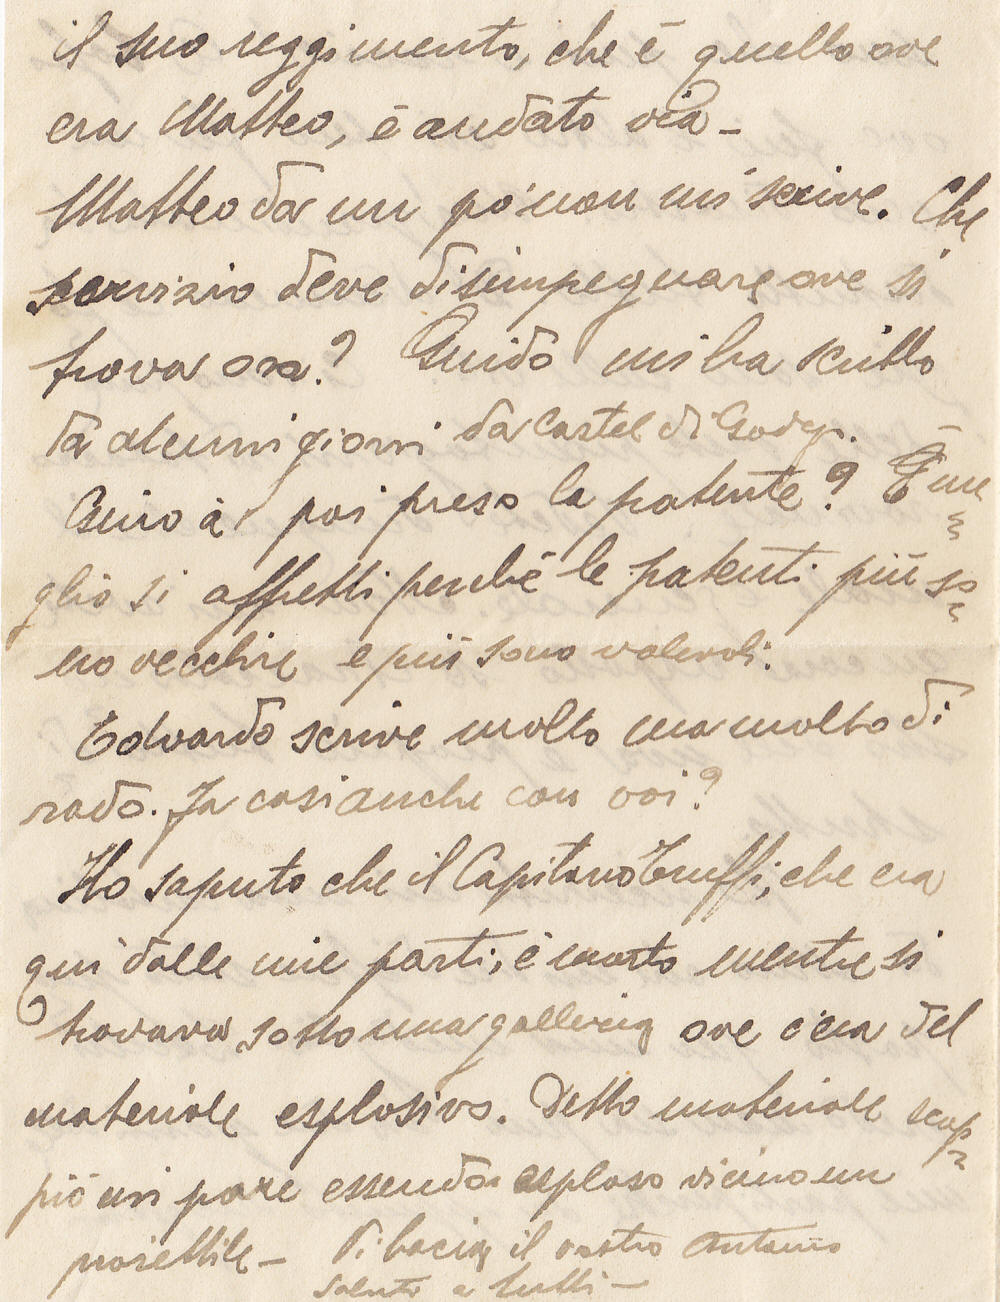 il suo reggimento, che è quello ove
era Matteo, è andato via –
Matteo da un po' non mi scrive. Che
servizio deve disimpegnare ove si
trova ora? Guido mi ha scritto
da alcuni giorni da Castel di Godego.
Gino à poi preso la patente? È me
glio si affretti perchè le patenti più so
no vecchie e più sono valevoli.
Edoardo scrive molto ma molto di
rado. Fa così anche con voi?
Ho saputo che il Capitano Truffi, che era
qui dalle mie parti, è morto mentre si
trovava sotto una galleria ove c'era del
materiale esplosivo. Detto materiale scop
piò mi pare essendo esploso vicino un
proiettile – Vi bacia il vostro Antonio
Saluto a tutti –